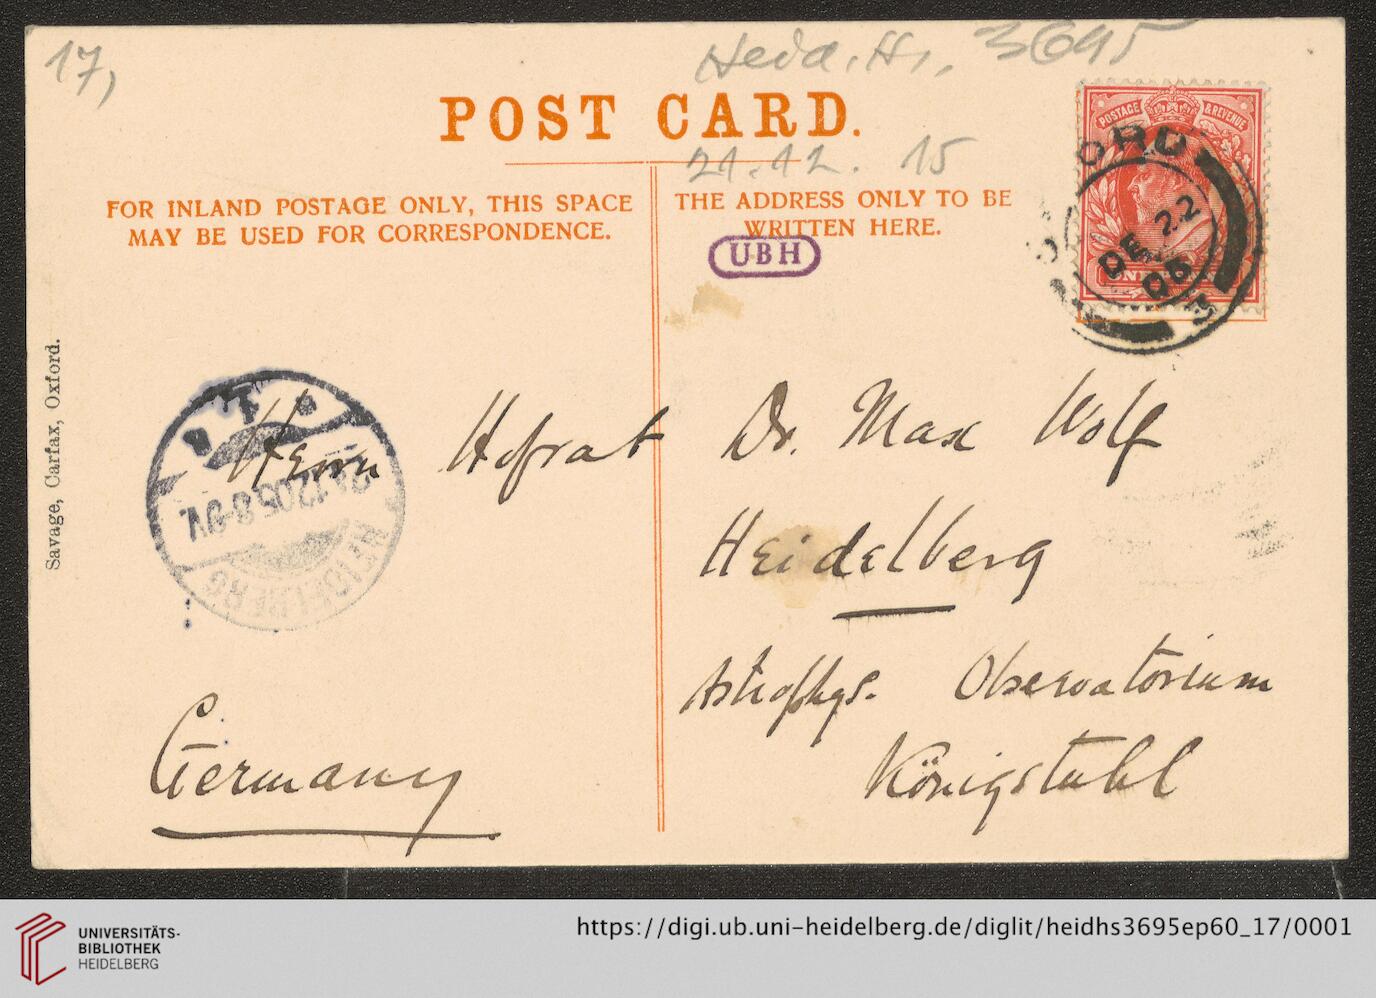 17,
Heid. Hs. 3695
POST CARD.
21.12. 15
FOR INLAND POSTAGE ONLY, THIS SPACE
MAY BE USED FOR CORRESPONDENCE.
THE ADDRESS ONLY TO BE
WRITTEN HERE.
UBH
POSTAGE & REVENUE
DE 22
05
Savage, Carfax, Oxford.
24.12.05.8-9V.
HEIDELBERG
Herrn Hofrat Dr. Max Wolf
Heidelberg
Astrophys. Observatorium
Königstuhl
Germany
UNIVERSITÄTS-
BIBLIOTHEK
HEIDELBERG
https://digi.ub.uni-heidelberg.de/diglit/heidhs3695ep60_17/0001